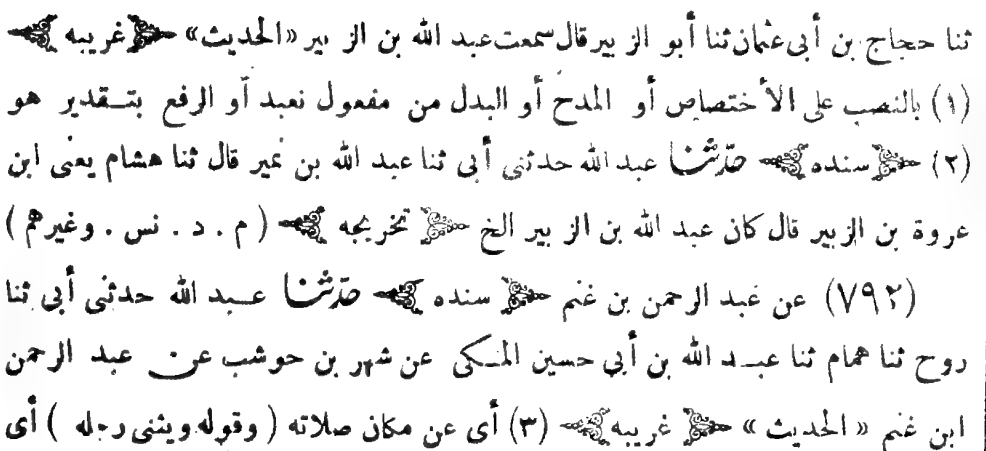 ثنا حجاج بن أبى عثمان ثنا أبو الزبير قال سمعت عبد الله بن الزبير «الحديث» غريبه
(١) بالنصب على الأختصاص أو المدح أو البدل من مفعول نعبد أو الرفع بتقدير هو
(٢) سنده حدّثنا عبد الله حدثنى أبى ثنا عبد الله بن نمير قال ثنا هشام يعنى ابن
عروة بن الزبير قال كان عبد الله بن الزبير الخ تخريجه (م . د . نس . وغيرهم)
(٧٩٢) عن عبد الرحمن بن غنم سنده حدّثنا عبد الله حدثنى أبى ثنا
روح ثنا همام ثنا عبد الله بن أبي حسين المكى عن شهر بن حوشب عن عبد الرحمن
ابن غنم «الحديث» غريبه (٣) أى عن مكان صلاته (وقوله ويثنى رجله) أى